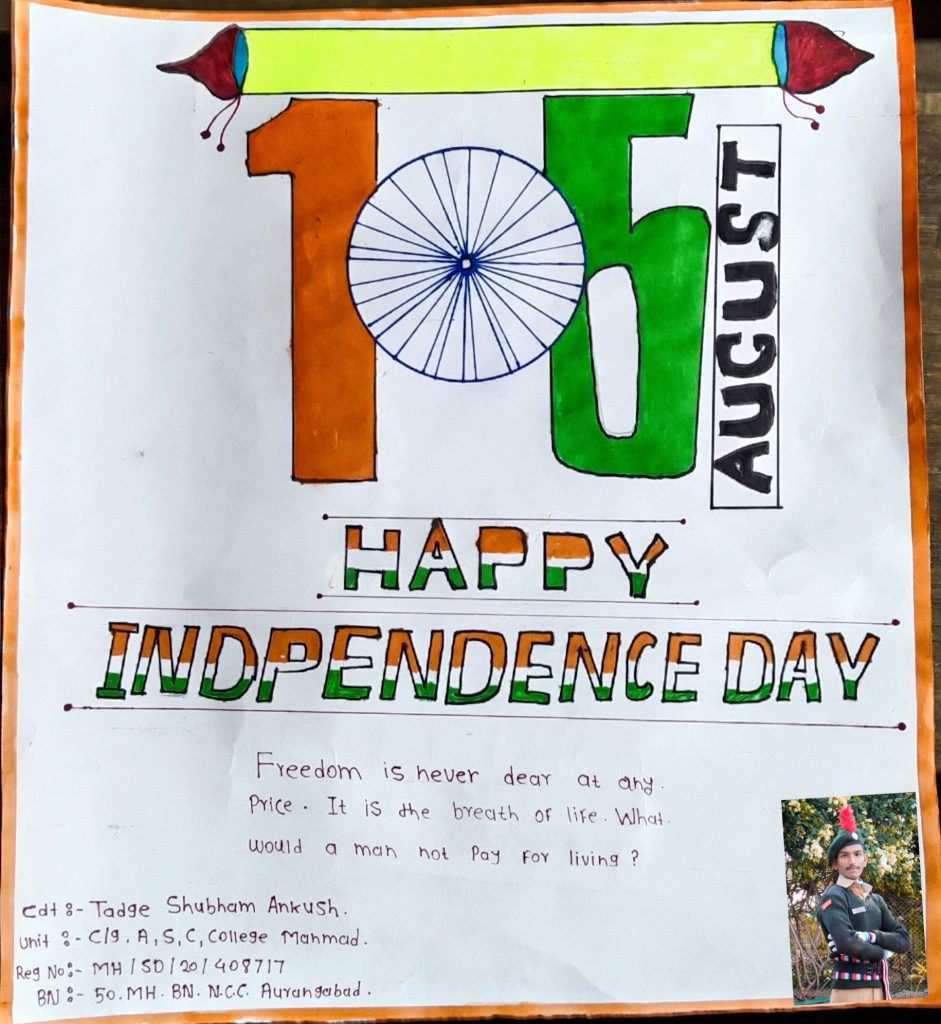 15
AUGUST
HAPPY
INDPENDENCE DAY
Freedom is never dear at any.
Price. It is the breath of life. What.
would a man not Pay For living ?
Cdt :- Tadge Shubham Ankush.
Unit :- C/9. A, S, C, College Manmad.
Reg No:- MH / SD / 20 / 408717
BN :- 50. MH. BN. N.C.C. Aurangabad.